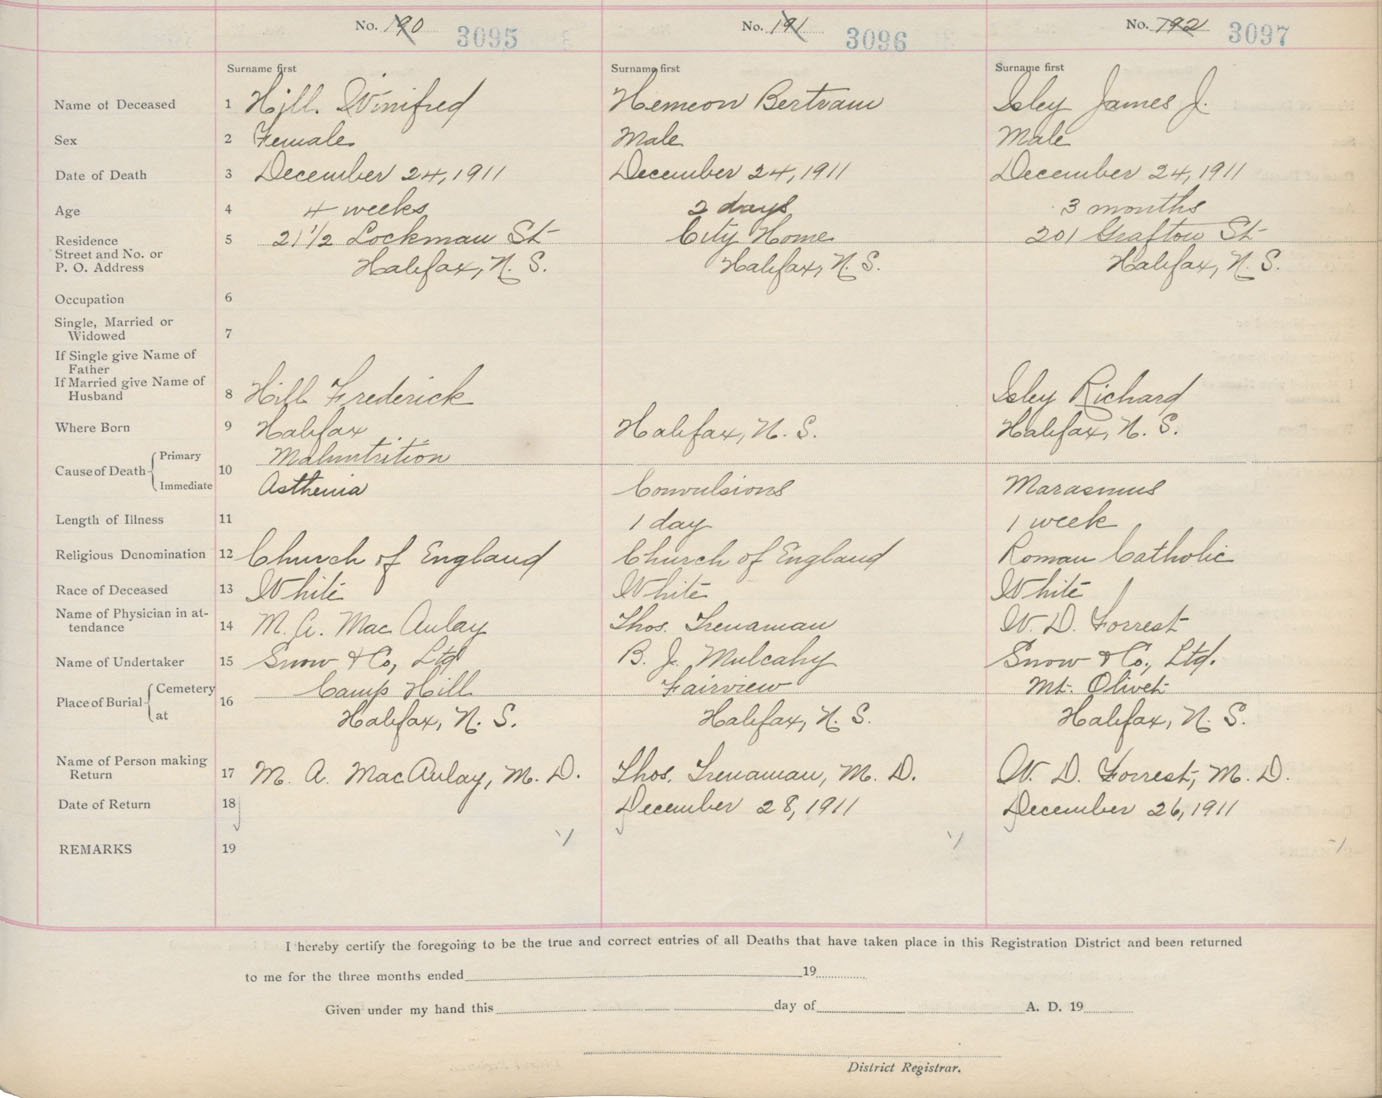 No. 190 3095 No. 191 3096 No. 792 3097
Surname first Surname first Surname first
Name of Deceased 1 Hill Winifred Hemeon Bertram Isley James J.
Sex 2 Female Male Male
Date of Death 3 December 24, 1911 December 24, 1911 December 24, 1911
Age 4 4 weeks 2 days 3 months
Residence 5 21 1/2 Lockman St City Home 201 Grafton St
Street and No. or
P. O. Address Halifax, N. S. Halifax, N. S. Halifax, N. S.
Occupation 6
Single, Married or
Widowed 7
If Single give Name of
Father
If Married give Name of
Husband 8 Hill Frederick Isley Richard
Where Born 9 Halifax Halifax, N. S. Halifax, N. S.
Primary Malnutrition
Cause of Death 10
Immediate Asthenia Convulsions Marasmus
Length of Illness 11 1 day 1 week
Religious Denomination 12 Church of England Church of England Roman Catholic
Race of Deceased 13 White White White
Name of Physician in at-
tendance 14 M. A. MacAulay Thos. Trenaman W. D. Forrest
Name of Undertaker 15 Snow & Co, Ltd B. J. Mulcahy Snow & Co., Ltd.
Cemetery Camp Hill Fairview Mt. Olivet
Place of Burial 16
at Halifax, N. S. Halifax, N. S. Halifax, N. S.
Name of Person making
Return 17 M. A. MacAulay, M. D. Thos. Trenaman, M. D. W. D. Forrest, M. D.
Date of Return 18 December 28, 1911 December 26, 1911
REMARKS 19
I hereby certify the foregoing to be the true and correct entries of all Deaths that have taken place in this Registration District and been returned
to me for the three months ended 19
Given under my hand this day of A. D. 19
District Registrar.